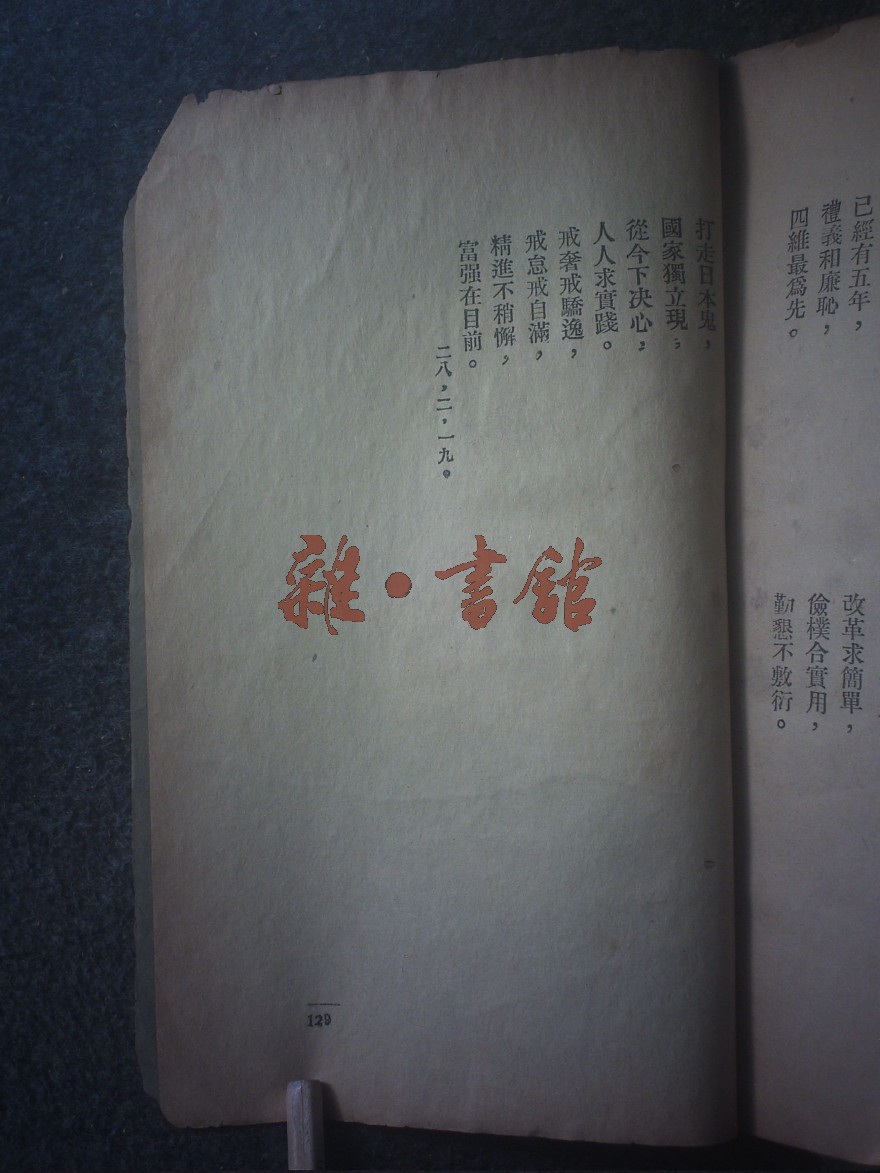 已經有五年，
禮義和廉恥，
四維最爲先。
改革求簡單，
儉樸合實用，
勤懇不敷衍。
打走日本鬼，
國家獨立現；
從今下决心，
人人求實踐。
戒奢戒驕逸，
戒怠戒自滿，
精進不稍懈，
富强在目前。
二八，二，一九。
雜·書館
129